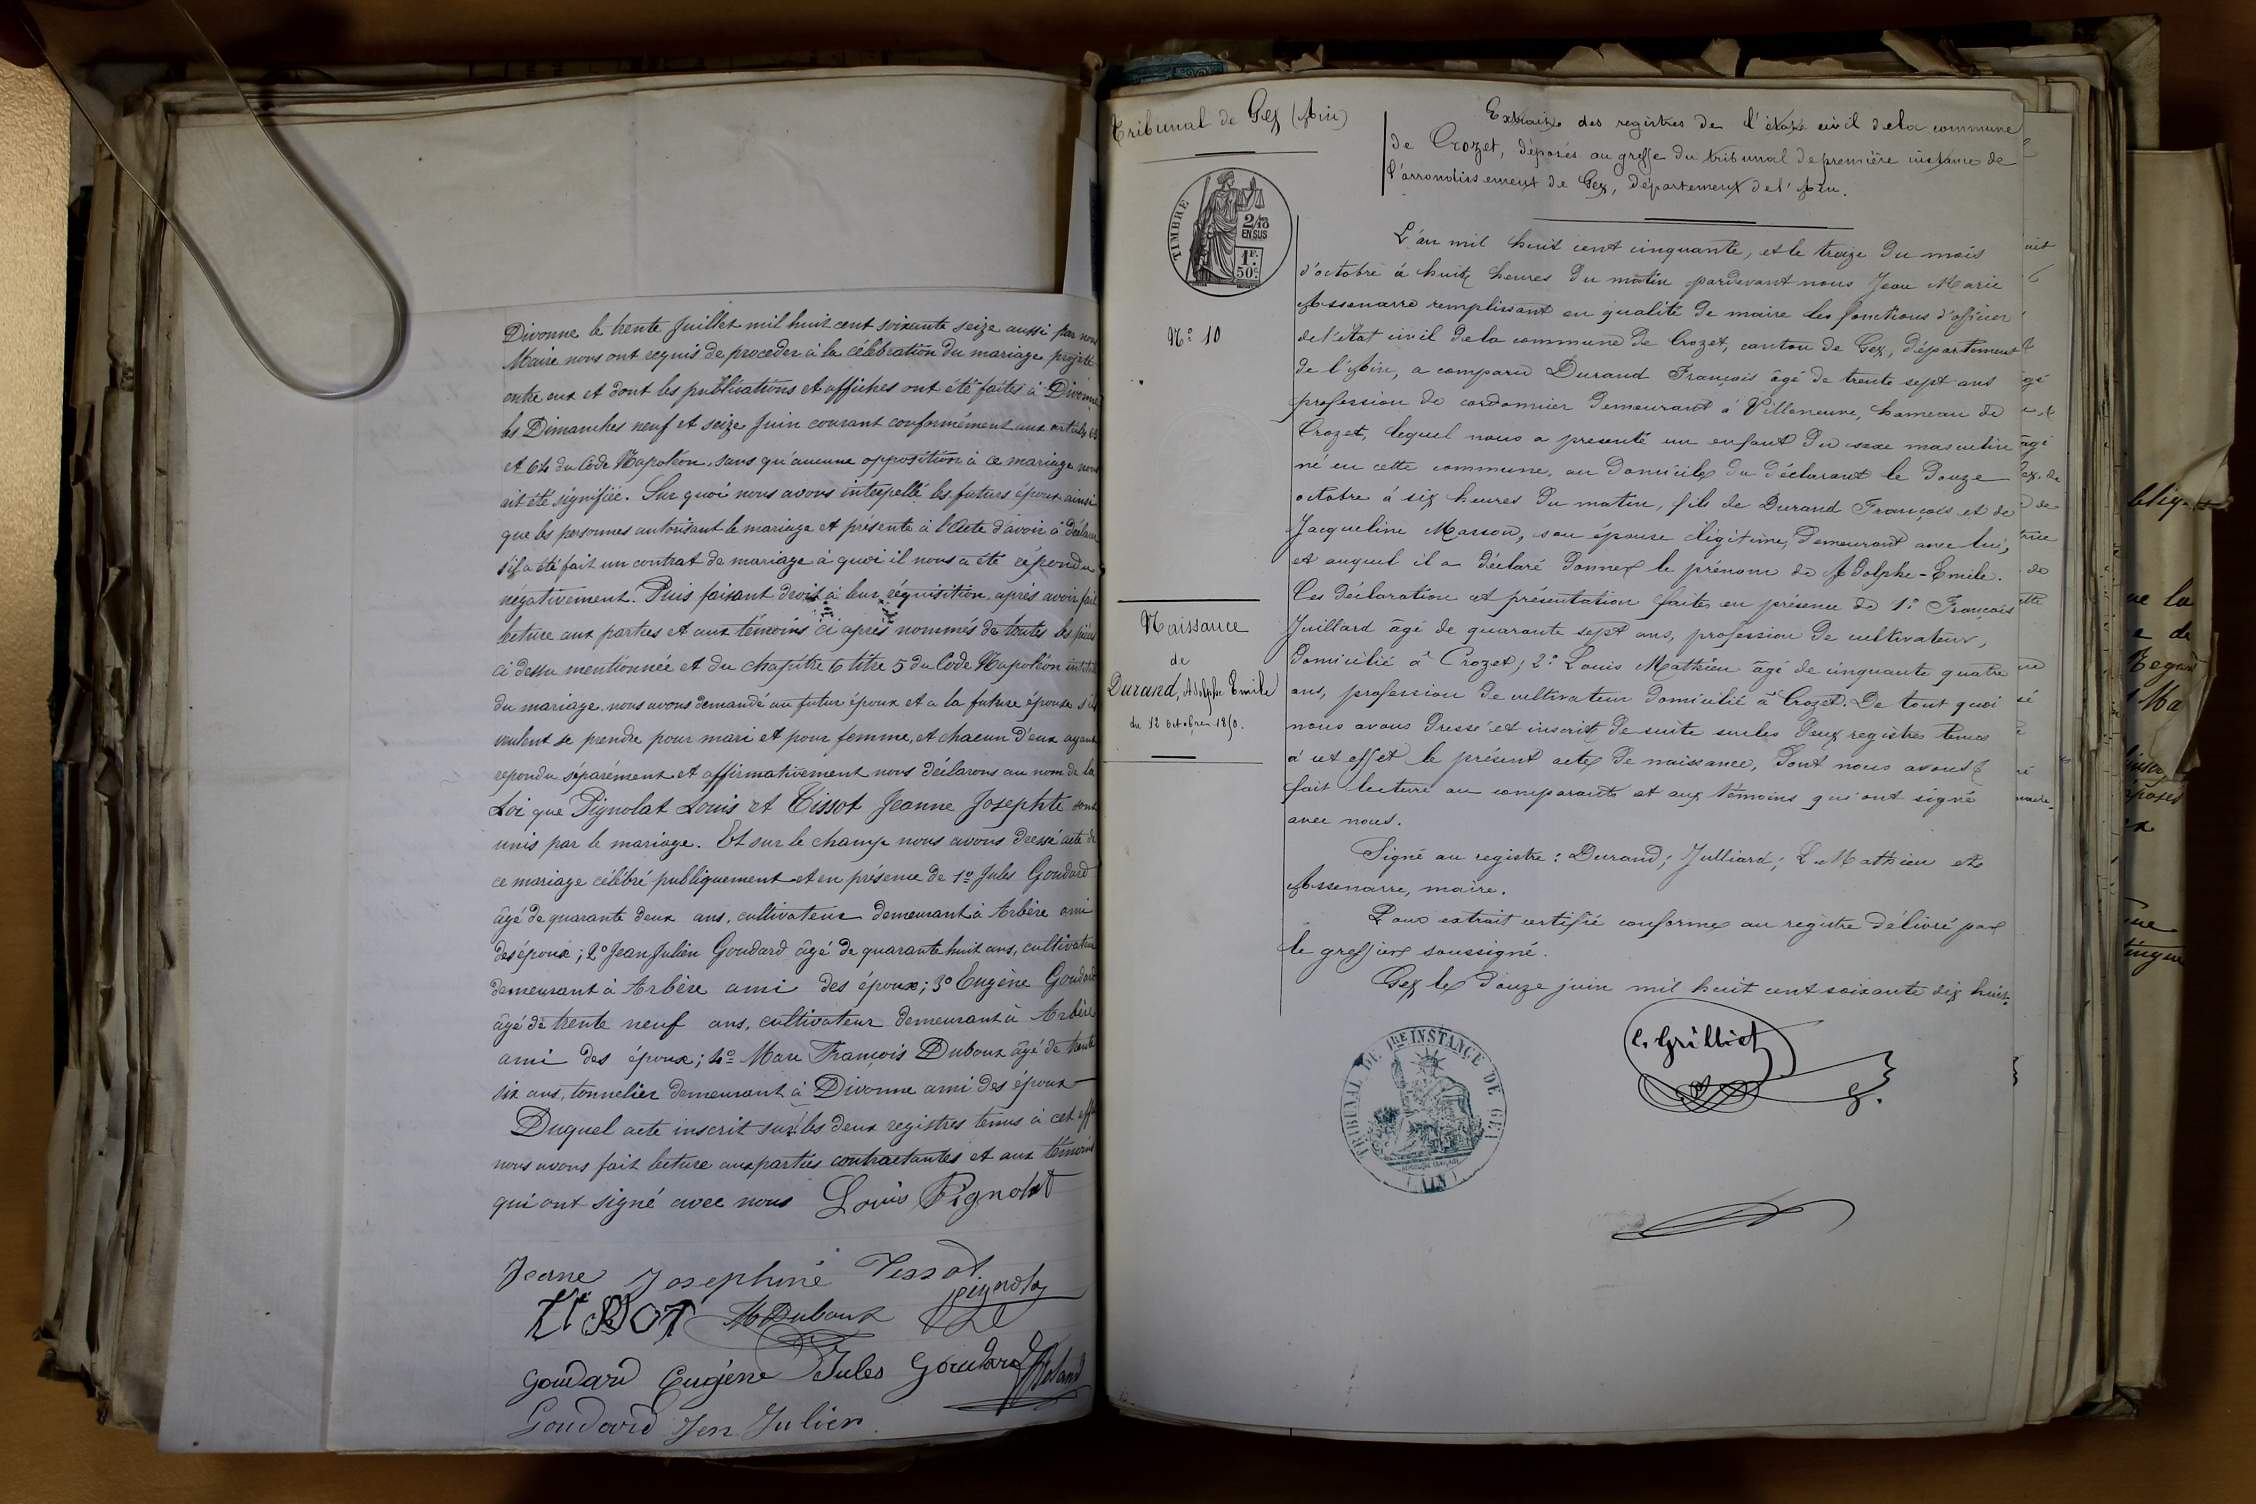 Divonne le trente Juillet mil huit cent soixante seize aussi par nous
Maire nous ont requis de proceder à la célébration du mariage projeté
entre eux et dont les publications et affiches ont été faites à Divonne
les Dimanches neuf et seize Juin courant conformément aux articles 63
et 64 du Code Napoléon, sans qu'aucune opposition à ce mariage nous
ait été signifiée. Sur quoi nous avons interpellé les futurs époux ainsi
que les personnes autorisant le mariage et présente à l'Acte d'avoir à déclarer
s'il a été fait un contrat de mariage à quoi il nous a été répondu
négativement. Puis faisant droit à leur réquisition, après avoir fait
lecture aux parties et aux témoins ci après nommés de toutes les pièces
ci dessu mentionnée et du chapitre 6 titre 5 du Code Napoléon intitulé
du mariage, nous avons demandé au futur époux et a la future épouse s'ils
veulent se prendre pour mari et pour femme, et chacun d'eux ayant
repondu séparément et affirmativement nous déclarons au nom de la
Loi que Pignolat Louis et Tissot Jeanne Josephte sont
unis par le mariage. Et sur le champ nous avons dressé acte de
ce mariage célébré publiquement et en présence de 1º Jules Goudard
âgé de quarante deux ans, cultivateur demeurant à Arbère ami
des époux; 2º Jean Julien Goudard âgé de quarante huit ans, cultivateur
demeurant à Arbère ami des époux; 3º Eugène Goudard
âgé de trente neuf ans, cultivateur demeurant à Arbère
ami des époux; 4º Marc François Duboux âgé de trente
six ans, tonnelier demeurant à Divonne ami des époux
Duquel acte inscrit sur les deux registres tenus à cet effet
nous avons fait lecture aux parties contractantes et aux témoins
qui ont signé avec nous Louis Pignolat
Jeane Josephine Tissot
Tissot M Duboux Pignolat
Goudard Eugène Jules Goudard
Goudard Jen Julien
Tribunal de Gex (Ain)
TIMBRE
2/10 EN SUS
1F. 50c
Nº 10
Naissance
de
Durand, Adolphe Emile
du 12 octobre 1850.
Extrait des registres de l'état civil de la commune
de Crozet, déposés au greffe du tribunal de première instance de
l'arrondissement de Gex, département de l'Ain.
L'an mil huit cent cinquante, et le treize du mois
d'octobre à huit heures du matin pardevant nous Jean Marie
Assenarre remplissant en qualité de maire les fonctions d'officier
de l'état civil de la commune de Crozet, canton de Gex, département
de l'Ain, a comparu Durand François âgé de trente sept ans
profession de cordonnier demeurant à Villeneuve, hameau de
Crozet, lequel nous a presenté un enfant du sexe masculin
né en cette commune, au domicile du déclarant le douze
octobre à six heures du matin, fils de Durand François et de
Jacqueline Masson, son épouse légitime, demeurant avec lui,
et auquel il a déclaré donner le prénom de Adolphe-Emile.
Ces déclaration et présentation faites en présence de 1º François
Juillard âgé de quarante sept ans, profession de cultivateur,
domicilié à Crozet; 2º Louis Mathieu âgé de cinquante quatre
ans, profession de cultivateur domicilié à Crozet. De tout quoi
nous avons dressé et inscrit de suite sur les deux registres tenus
à cet effet le présent acte de naissance, dont nous avons
fait lecture au comparant et aux témoins qui ont signé
avec nous.
Signé au registre: Durand; Julliard; L. Mathieu et
Assenarre, maire.
Pour extrait certifié conforme au registre délivré par
le greffier soussigné.
Gex le douze juin mil huit cent soixante dix huit.
C. Grilliet
TRIBUNAL DE 1RE INSTANCE DE GEX
(AIN)